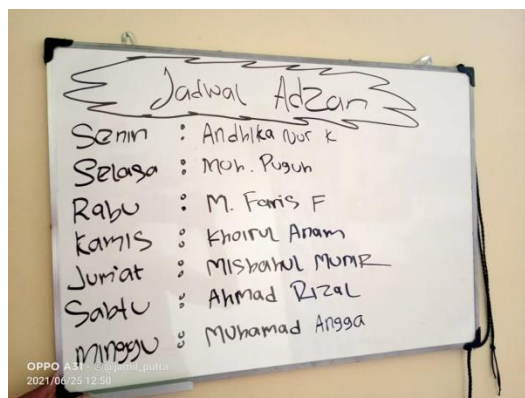 Jadwal Adzan
Senin : Andhika Nur K
Selasa : Moh. Puguh
Rabu : M. Faris F
Kamis : Khoirul Anam
Jum'at : Misbahul MunR
Sabtu : Ahmad Rizal
Minggu : Mohamad Angga
OPPO A31 · @jamil_putra
2021/06/25 12:50